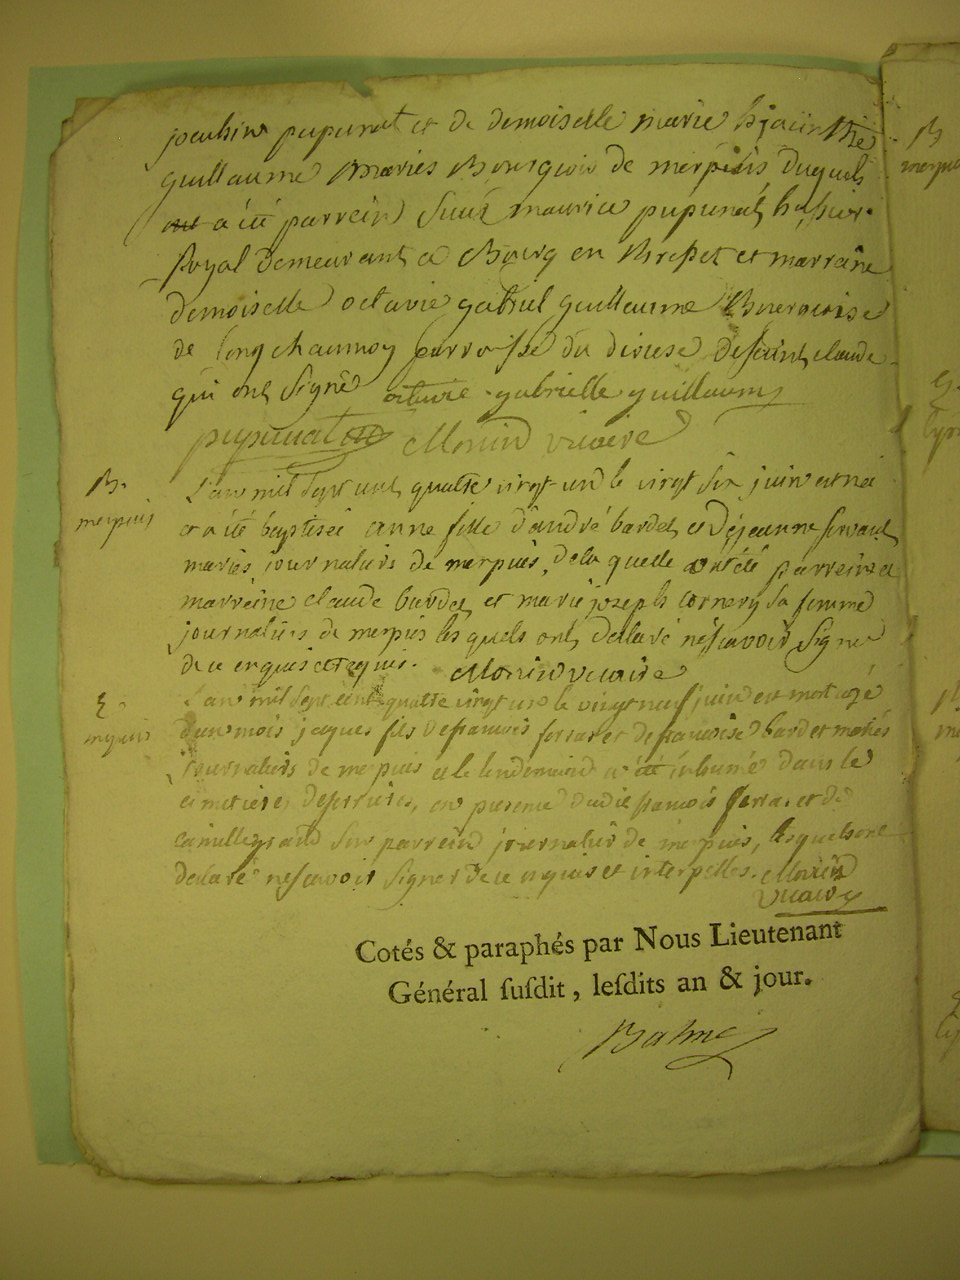 joachim pupunat et de demoiselle marie hjacinthe
guillaume Maries Bourgois de merpuis duquels
a été parrein Sieur maurice pupunat huissier
Royal demeurant a Bourg en Bresse et marreine
demoiselle octavie gabriel guillaume Bourgoise
de longchaumoy parroisse du diocese de saint claude
qui ont signé octavie gabrielle guillaume
pupunat Monin vicaire
B.
merpuis
L'an mil sept cent quatre vingt un le vingt six juin est née
et a été baptisée anne fille d'andré bardet et de jeanne
mariés journaliers de merpuis, de la quelle ont été parrein et
marreine claude bardet et marie joseph cornery sa femme
journaliers de merpuis les quels ont declaré ne sçavoir signer
de ce enquis et requis. Monin vicaire
L'an mil sept cent quatre vingt un le vingt neuf juin est mort agé
d'un mois jaques fils de francois ferrar et de francoise bardet mariés
journaliers de merpuis et le lendemain a été inhumé dans le
cimetiere en presence dudit francois ferrar et de
camille grand son parrein journalier de merpuis, lesquels ont
declaré ne sçavoir signer de ce enquis et interpellés. Monin
vicaire
Cotés & paraphés par Nous Lieutenant
Général ſuſdit, leſdits an & jour.
B